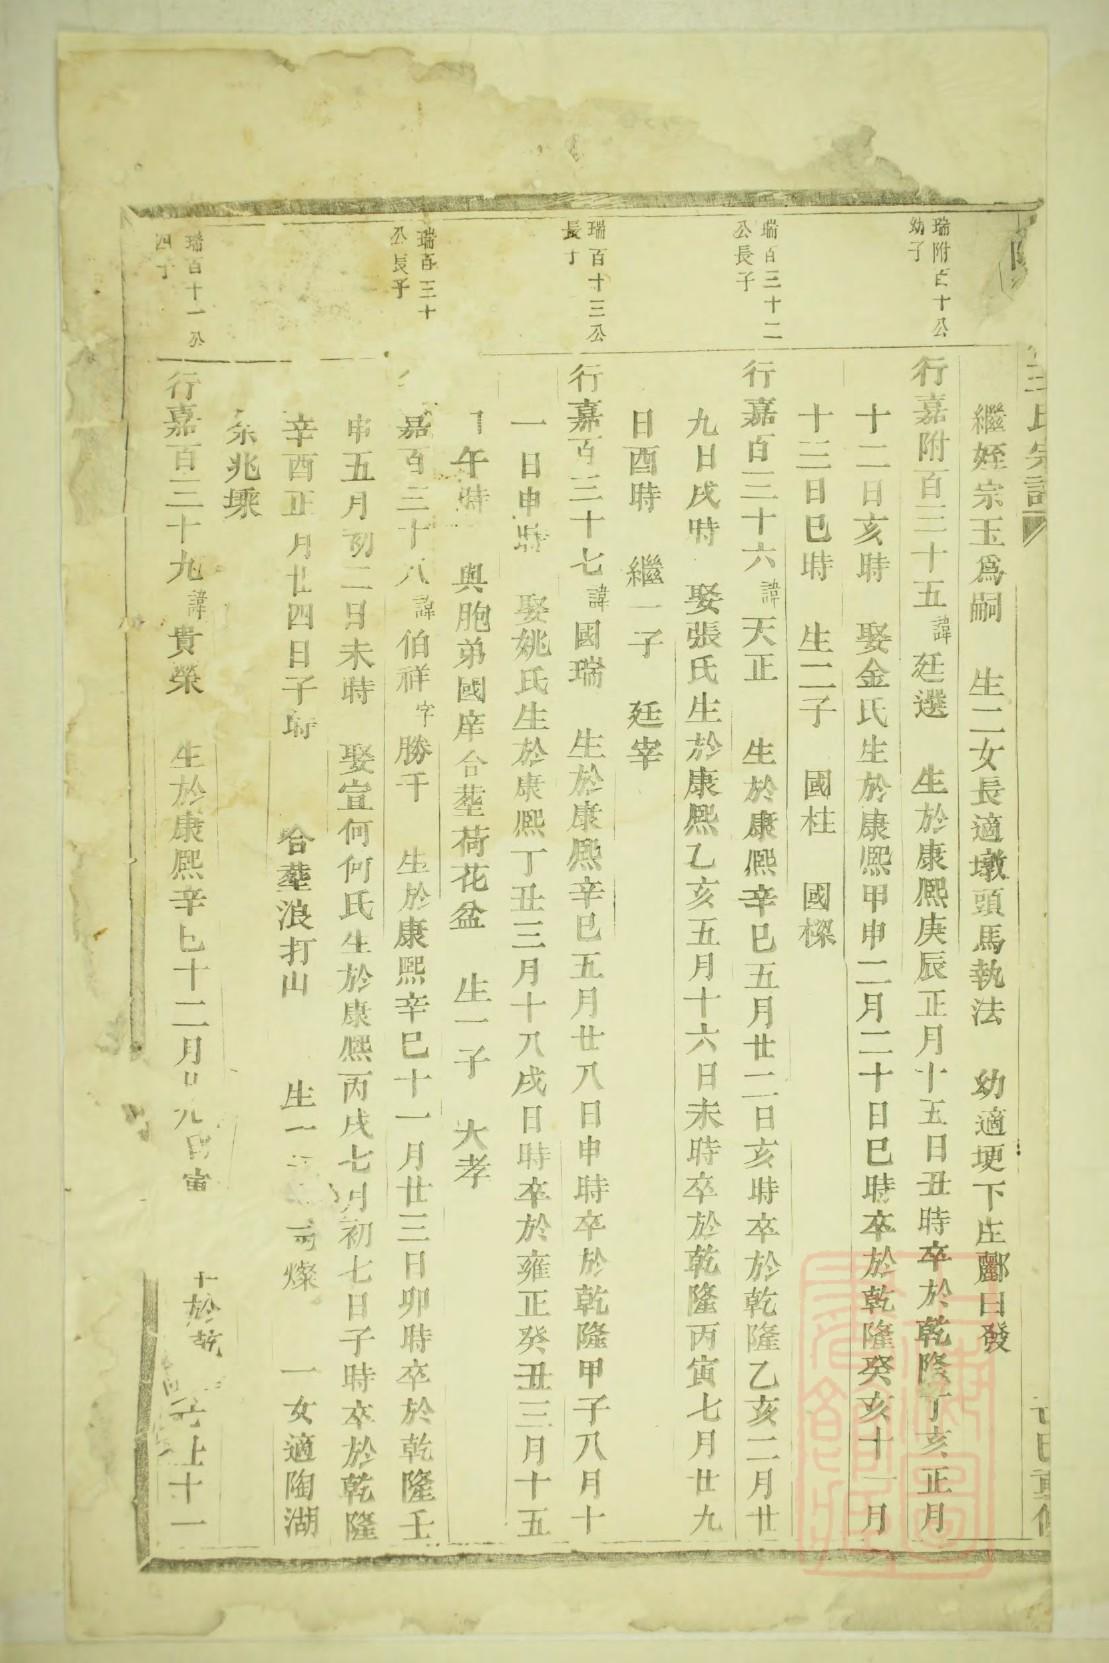 王氏宗譜
繼姪宗玉爲嗣 生二女長適墩頭馬執法 幼適埂下庄酈日發
瑞附百十公
幼子
行嘉附百三十五諱廷選 生於康熙庚辰正月十五日丑時卒於乾隆丁亥正月
十二日亥時 娶金氏生於康熙甲申二月二十日巳時卒於乾隆癸亥十一月
十三日巳時 生二子 國柱 國樑
瑞百三十二
公長子
行嘉百三十六諱天正 生於康熙辛巳五月廿二日亥時卒於乾隆乙亥二月廿
九日戌時 娶張氏生於康熙乙亥五月十六日未時卒於乾隆丙寅七月廿九
日酉時 繼一子 廷宰
瑞百十三公
長子
行嘉百三十七諱國瑞 生於康熙辛巳五月廿八日申時卒於乾隆甲子八月十
一日申時 娶姚氏生於康熙丁丑三月十八戌日時卒於雍正癸丑三月十五
日午時 與胞弟國庠合塟荷花盆 生一子 大孝
瑞百三十
公長子
嘉百三十八諱伯祥字勝千 生於康熙辛巳十一月廿三日卯時卒於乾隆壬
申五月初二日未時 娶宣何何氏生於康熙丙戌七月初七日子時卒於乾隆
辛酉正月廿四日子時 合塟浪打山 生一 燦 一女適陶湖
余兆墚
瑞百十一公
四子
行嘉百三十九諱貴榮 生於康熙辛巳十二月廿九日寅 於乾 十一